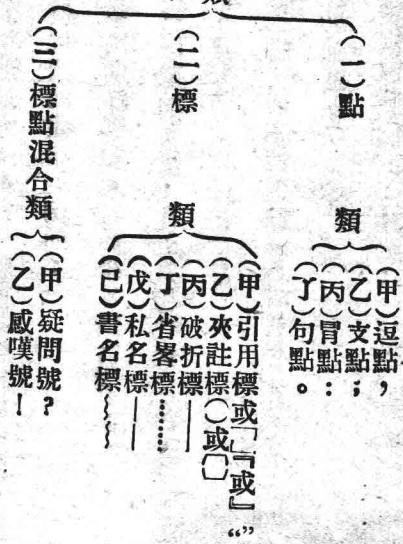 類
（一）點類
（甲）逗點，
（乙）支點；
（丙）冒點：
（丁）句點。
（二）標類
（甲）引用標或「」『或』“”
（乙）夾註標（）或〔〕
（丙）破折標——
（丁）省畧標……
（戊）私名標——
（己）書名標﹏﹏
（三）標點混合類
（甲）疑問號？
（乙）感嘆號！